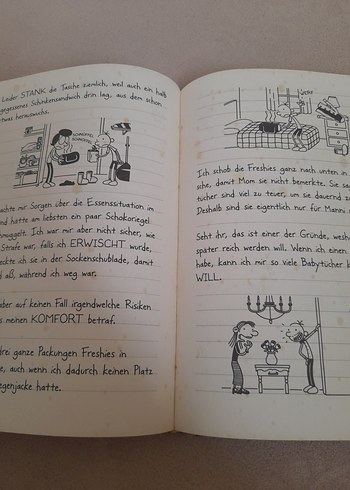 Leder STANK die Tasche ziemlich, weil auch ein halb
gegessenes Schinkensandwich drin lag, aus dem schon
etwas herauswuchs.
SCHNÜFFEL
SCHNÜFFEL
machte mir Sorgen über die Essenssituation im
und hätte am liebsten ein paar Schokoriegel
muggelt. Ich war mir aber nicht sicher, wie
Strafe war, falls ich ERWISCHT wurde,
eckte ich sie in der Sockenschublade, damit
aß, während ich weg war.
aber auf keinen Fall irgendwelche Risiken
s meinen KOMFORT betraf.
drei ganze Packungen Freshies in
e, auch wenn ich dadurch keinen Platz
egenjacke hatte.
Ich schob die Freshies ganz nach unten in
sche, damit Mom sie nicht bemerkte. Sie sa
tücher sind viel zu teuer, um sie dauernd z
Deshalb sind sie eigentlich nur für Manni
Seht ihr, das ist einer der Gründe, wesh
später reich werden will. Wenn ich einen
habe, kann ich mir so viele Babytücher k
WILL.